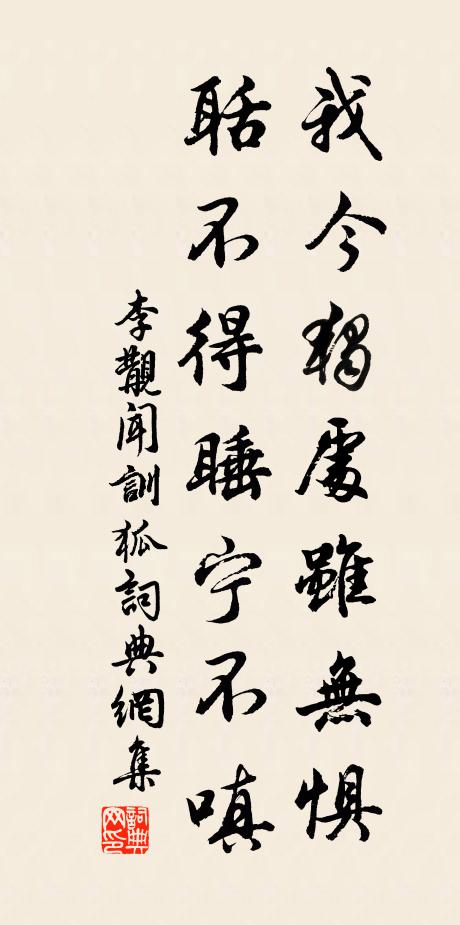 我今獨處雖無惧
聒不得睡宁不嗔
李觏聞訓狐詞典網集
詞典网印